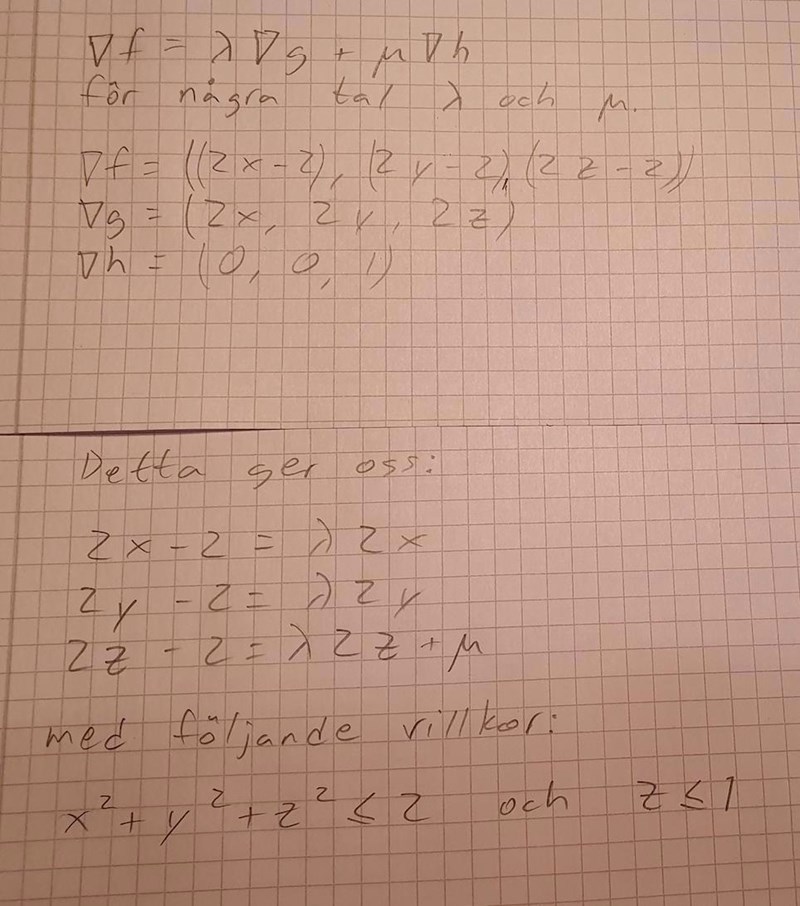 ∇f = λ∇g + μ∇h
för några tal λ och μ.
∇f = ((2x-2), (2y-2), (2z-2))
∇g = (2x, 2y, 2z)
∇h = (0, 0, 1)
Detta ger oss:
2x - 2 = λ2x
2y - 2 = λ2y
2z - 2 = λ2z + μ
med följande villkor:
x² + y² + z² ≤ 2 och z ≤ 1